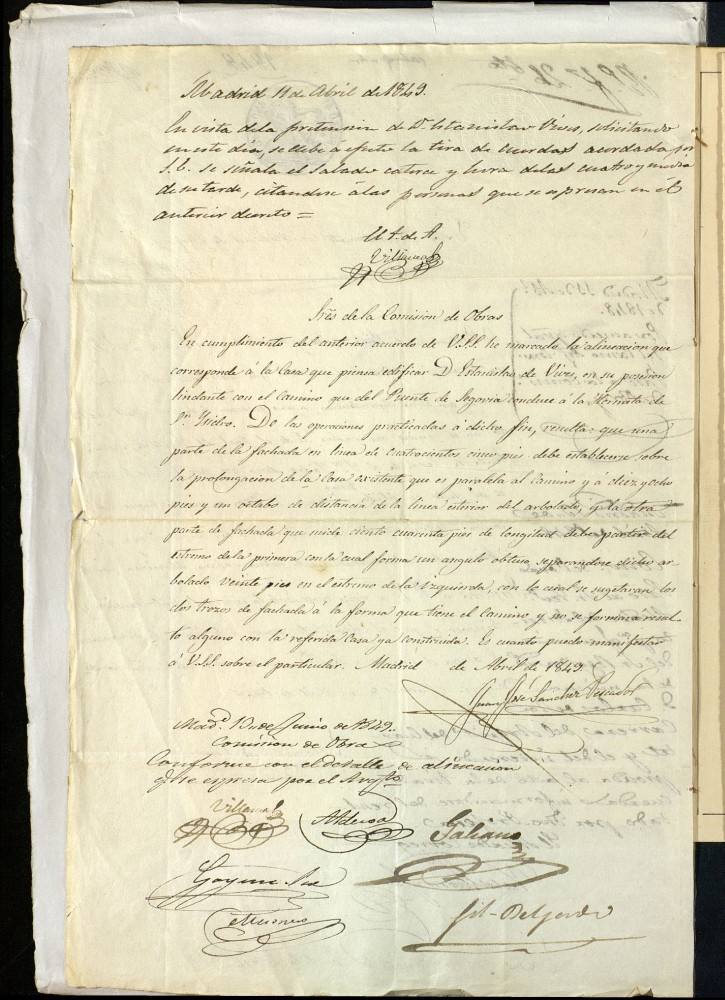 Madrid 11 de Abril de 1849.
En vista de la pretension de Dn. Estanislao Vives, solicitando
en este dia, se lleve á efecto la tira de cuerdas acordada por
S.E. se señala el Sabado catorce y hora de las cuatro y media
de su tarde, citandose á las personas que se espresan en el
anterior decreto =
El A. de A.
Villarreal
Sres. de la Comision de Obras
En cumplimiento del anterior acuerdo de V.S.S. he marcado la alineacion que
corresponde á la Casa que piensa edificar D. Estanislao de Vives, en su posesion
lindante con el camino que del Puente de Segovia conduce á la Hermita de
Sn. Ysidro. De las operaciones practicadas á dicho fin, resulta que una
parte de la fachada en linea de cuatrocientos cinco pies debe establecerse sobre
la prolongacion de la Casa existente que es paralela al camino y á diez y ocho
pies y un octabo de distancia de la linea esterior del arbolado, y la otra
parte de fachada que mide ciento cuarenta pies de longitud debe partir del
estremo de la primera con la cual forma un angulo obtuso separandose dicho ar-
bolado veinte pies en el estremo de la izquierda, con lo cual se sugetaran los
dos trozos de fachada á la forma que tiene el camino y no se formara resal-
to alguno con la referida Casa ya construida. Es cuanto puedo manifestar
á V.S.S. sobre el particular. Madrid de Abril de 1849.
Juan José Sanchez Pescador
Madd. 13 de Junio de 1849.
Comision de Obras
Conforme con el detalle de alineacion
que espresa por el Arqto.
Villarreal
Aldecoa
Galiano
Goyeneche
Gil-Delgado